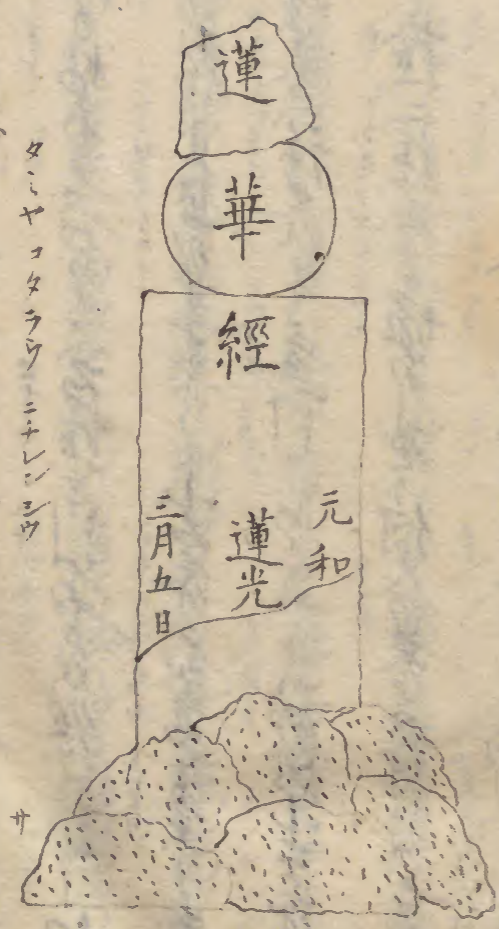 蓮
華
經
元和
蓮光
三月五日
タミヤコタラウニチレンシウ
サ